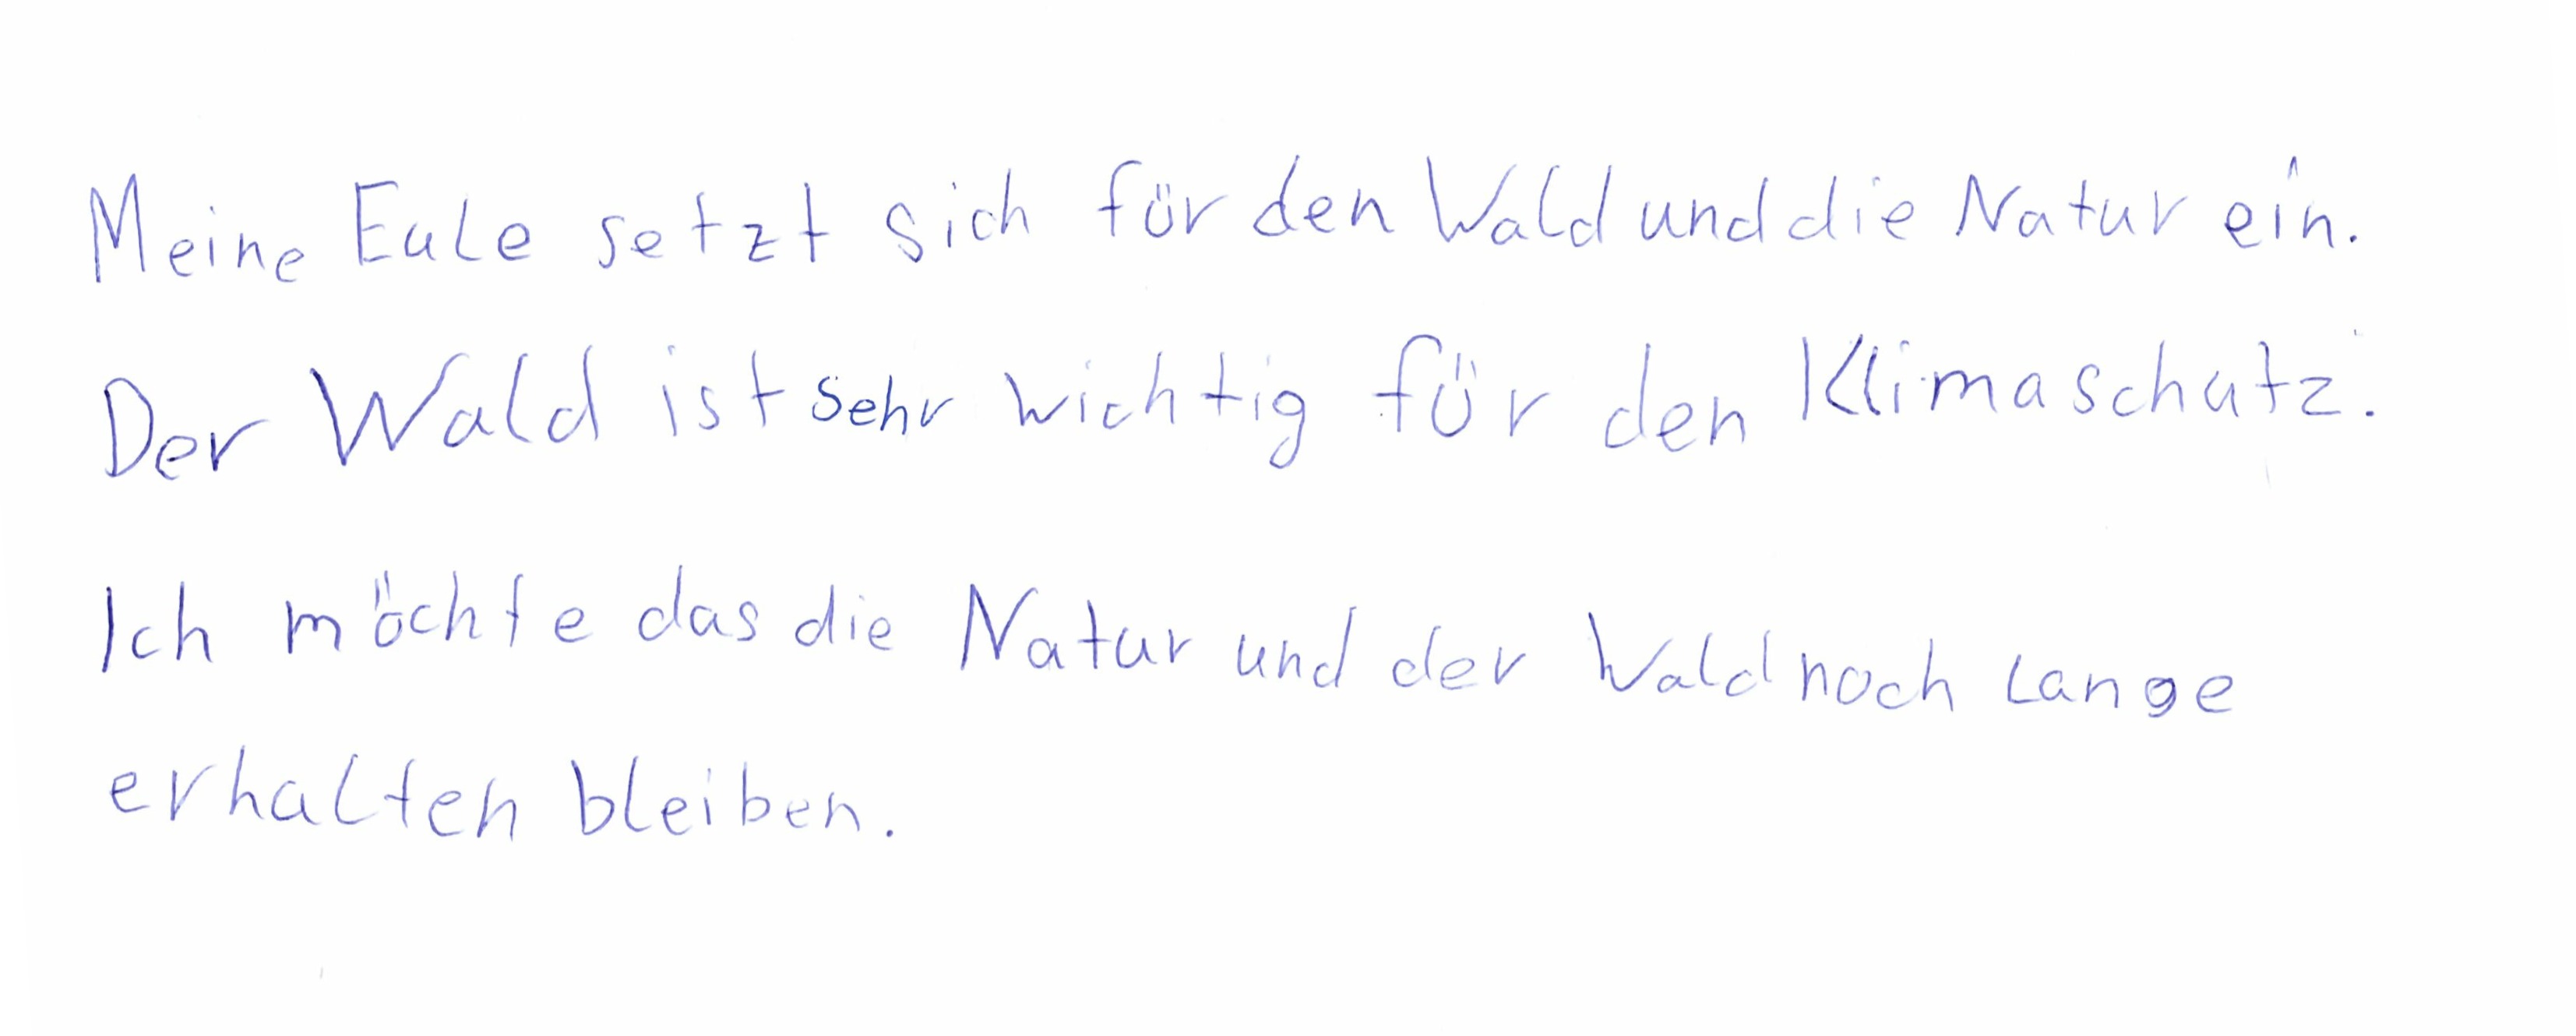 Meine Eule setzt sich für den Wald und die Natur ein.
Der Wald ist sehr wichtig für den Klimaschutz.
Ich möchte das die Natur und der Wald noch lange
erhalten bleiben.